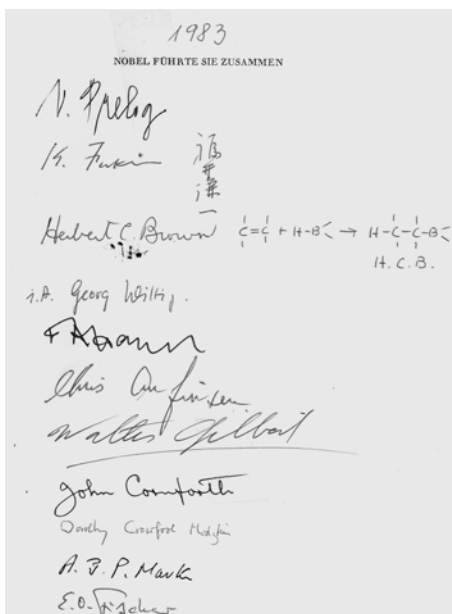 1983
NOBEL FÜHRTE SIE ZUSAMMEN
V. Prelog
K. Fukui 福井謙一
Herbert C. Brown C=C + H-B → H-C-C-B
H.C.B.
i.A. Georg Wittig.
Chris Anfinsen
Walter Gilbert
John Cornforth
Dorothy Crowfoot Hodgkin
A. J. P. Martin
E.O. Fischer